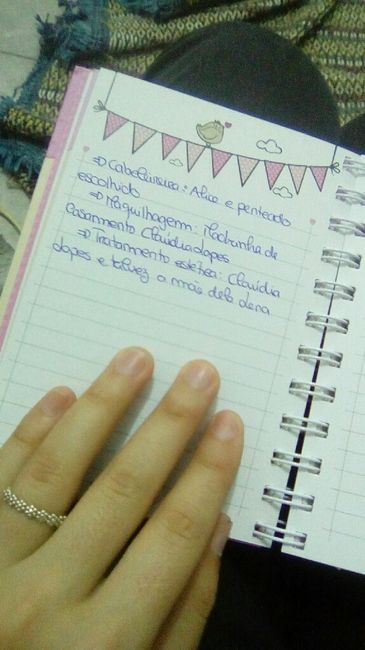 ⇒ Cabeleireira: Alice e penteado
escolhido
⇒ Maquilhagem: Madrinha de
Casamento Claúdia Lopes
⇒ Tratamento estética: Claúdia
Lopes e talvez a mãe dela Lena